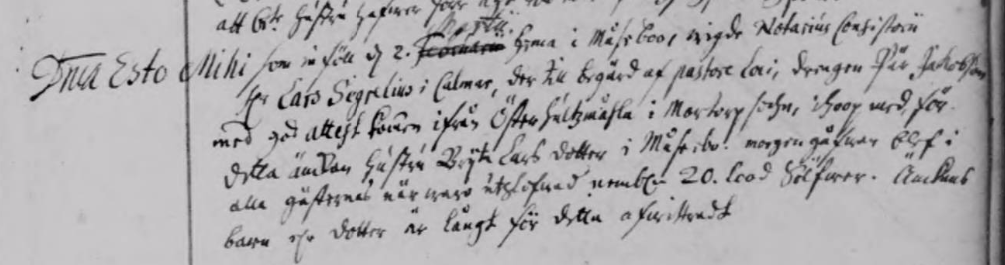 att Er. hústru
Martii
Dnca Esto Mihi som inföll d. 2. hema i Måsebo, vigde Notarius Consistorii
Hr Lars Sigrelius i Calmar, der til begärd af pastore Loci, drengen Pär Jakobsson
med god attest kommen ifrån Österhultzmåhla i Mortorp sochn, ihoop med, för
detta änckan hústru Brÿta Lars dotter i Måsebo. morgongåfwan blef i
alla gästernas närwaro útlofwad nembl. 20. lood Sölfwer. Änckans
barn dotter är långt för detta afwittradt